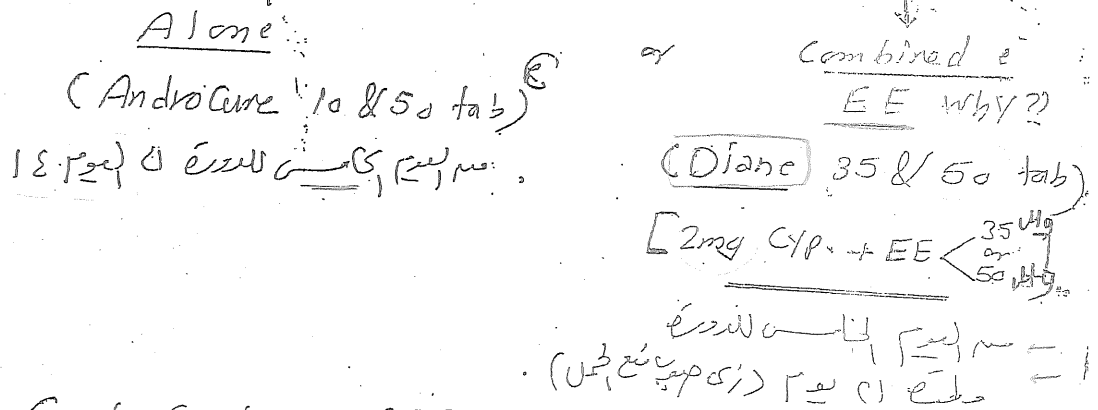 Alone
(Androcure 10 & 50 tab) ®
من اليوم الخامس للدورة الى اليوم ١٤
or
Combined e
EE Why??
(Diane 35 & 50 tab)
[2mg Cyp. + EE < 35 Mg or 50 Mg
من اليوم الخامس للدورة
لمدة ٢١ يوم (زى حبوب منع الحمل)